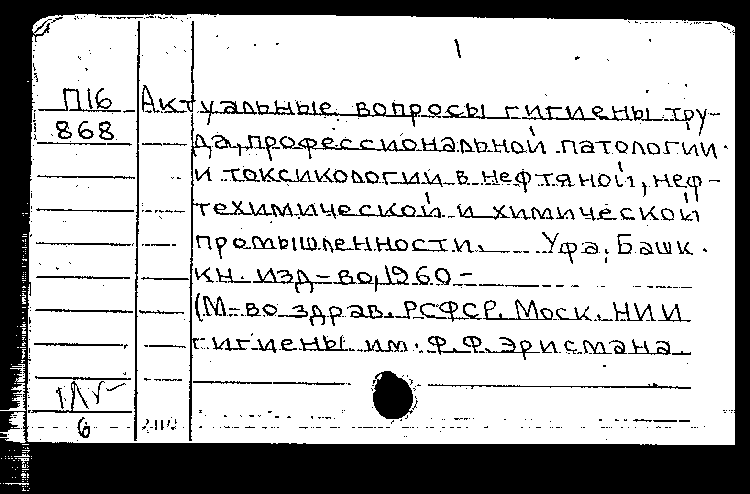 1
П16 Актуальные вопросы гигиены тру-
868 да, профессиональной патологии
и токсикологии в нефтяной, неф-
техимической и химической
промышленности. Уфа, Башк.
кн. изд-во, 1960-
(М-во здрав. РСФСР. Моск. НИИ
гигиены им. Ф.Ф. Эрисмана.
6